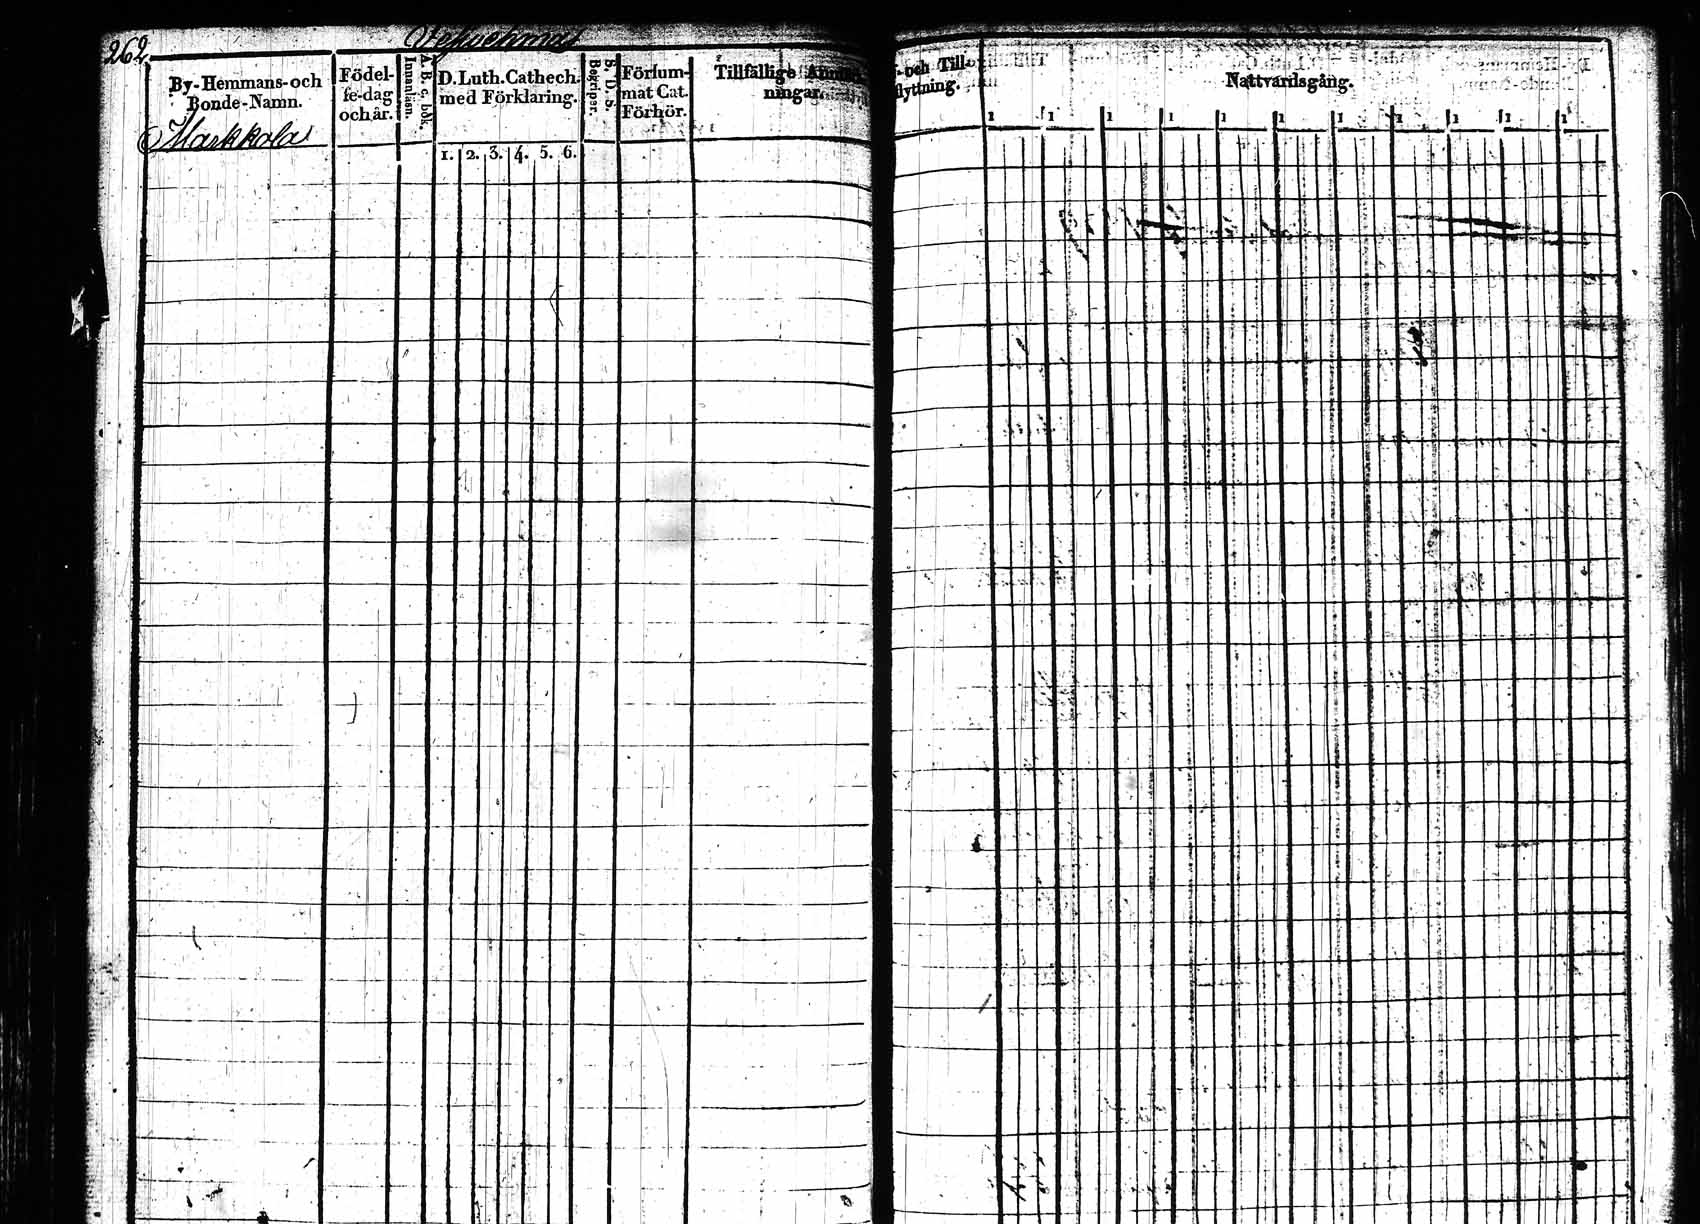 262.
By-Hemmans-och
Bonde-Namn.
Födel-
se-dag
och år.
A. B. c. bok.
Innanläsn.
D. Luth. Cathech.
med Förklaring.
1. 2. 3. 4. 5. 6.
S. D. S.
Begriper.
Försum-
mat Cat.
Förhör.
Tillfällige
ningar.
Markkola
och Till-
flyttning.
Nattvardsgång.
1 1 1 1 1 1 1 1 1 1 1